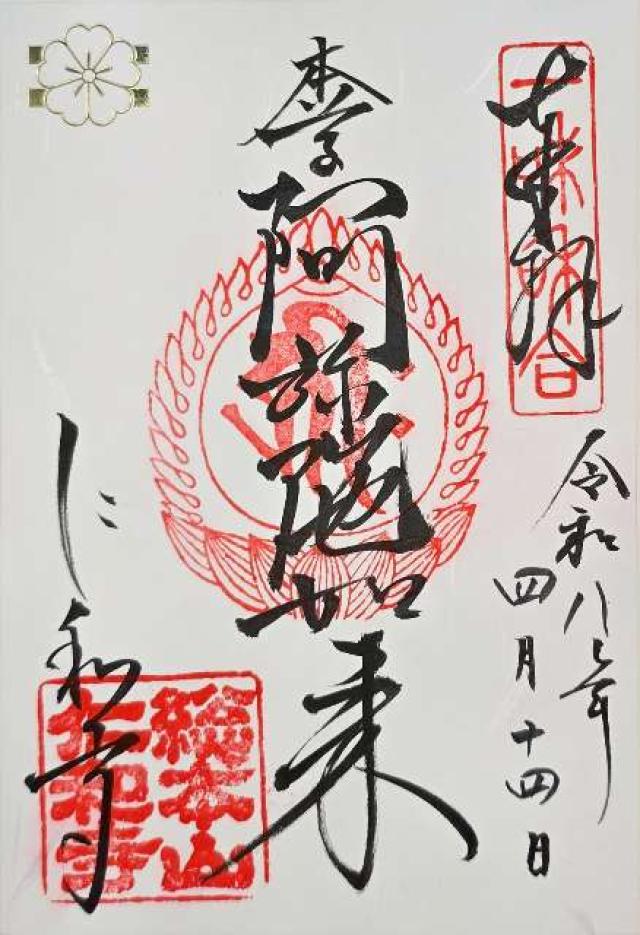 奉拝
令和八年
四月十四日
本尊阿弥陀如来
仁和寺
総本山
仁和寺